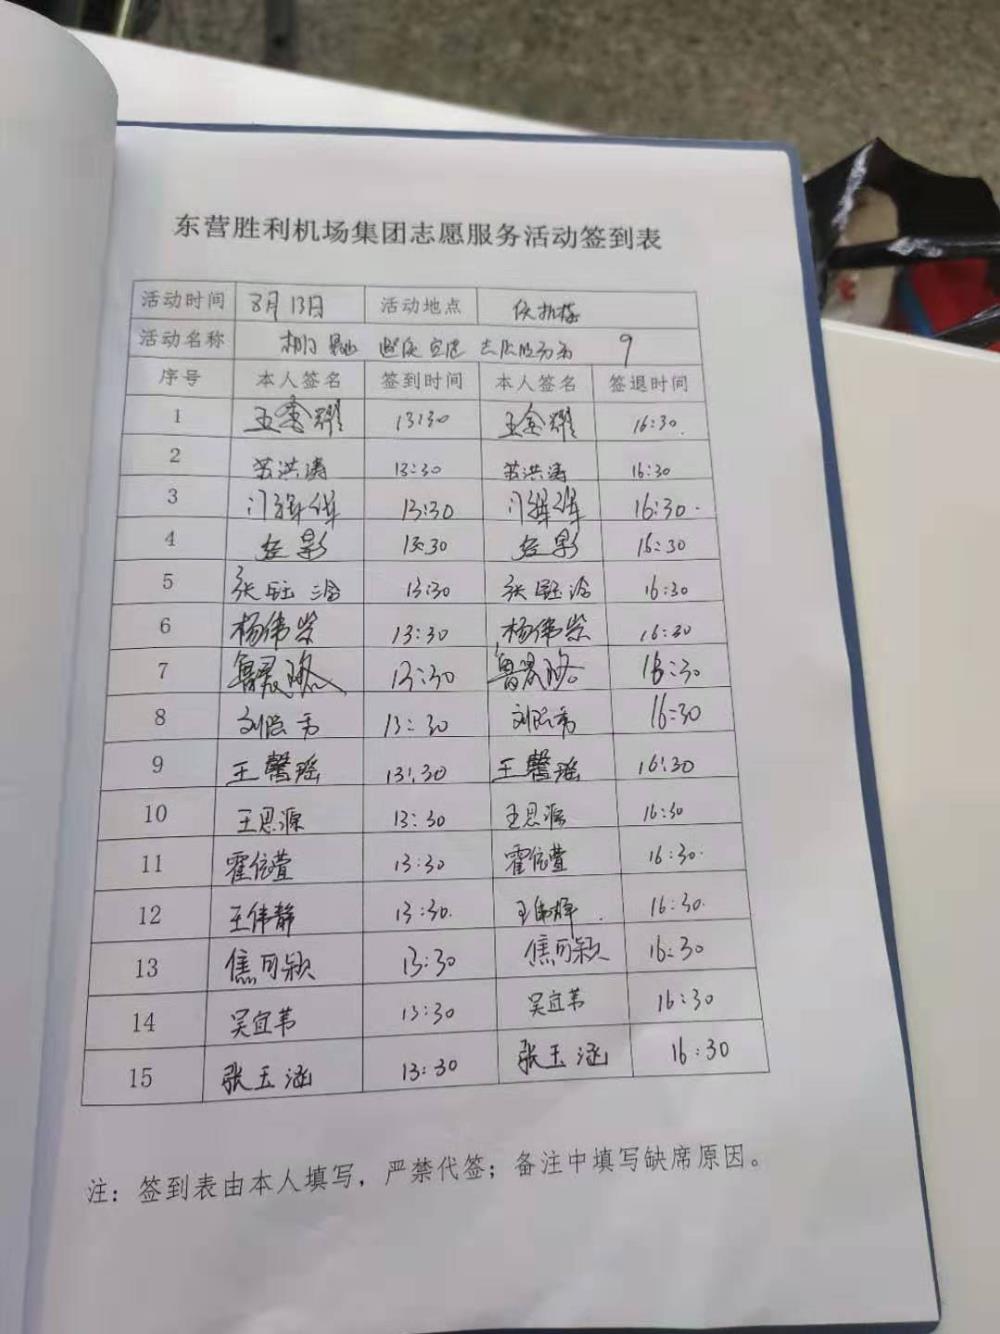 东营胜利机场集团志愿服务活动签到表
活动时间 8月13日 活动地点 候机楼
活动名称 9
序号 本人签名 签到时间 本人签名 签退时间
1 王金耀 13:30 王金耀 16:30
2 苏洪涛 13:30 苏洪涛 16:30
3 13:30 16:30
4 13:30 16:30
5 张钰 13:30 张钰 16:30
6 杨伟崇 13:30 杨伟崇 16:30
7 鲁君 13:30 鲁君 16:30
8 刘 13:30 刘 16:30
9 王馨瑶 13:30 王馨瑶 16:30
10 王思源 13:30 王思源 16:30
11 霍依萱 13:30 霍依萱 16:30
12 王伟静 13:30 王伟 16:30
13 焦可颖 13:30 焦可颖 16:30
14 吴宜苇 13:30 吴宜苇 16:30
15 张玉涵 13:30 张玉涵 16:30
注：签到表由本人填写，严禁代签；备注中填写缺席原因。